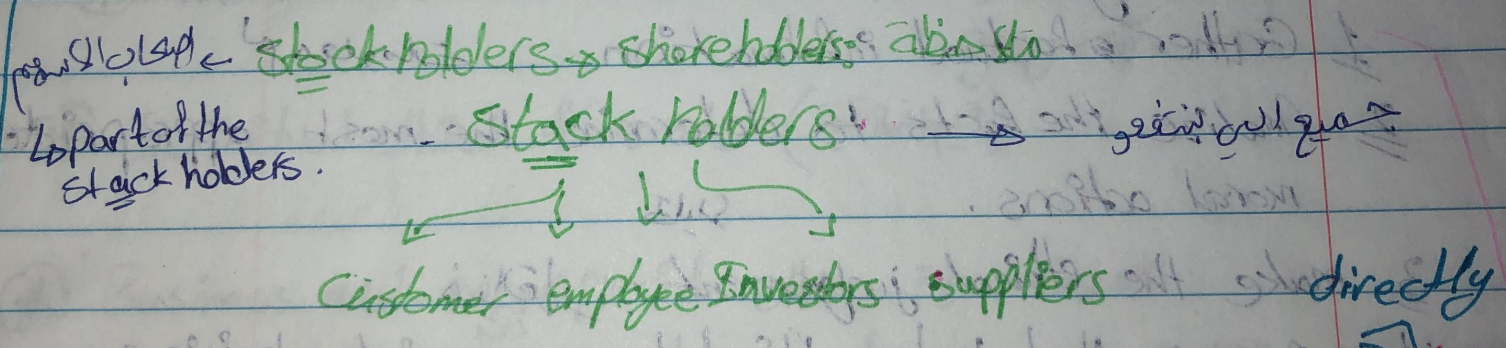 اصحاب الاسهم ← stockholders → shareholders:
↳ part of the
stack holders.
- stack holders: → جميع الي بنتفعو
Customer employee Investors suppliers directly